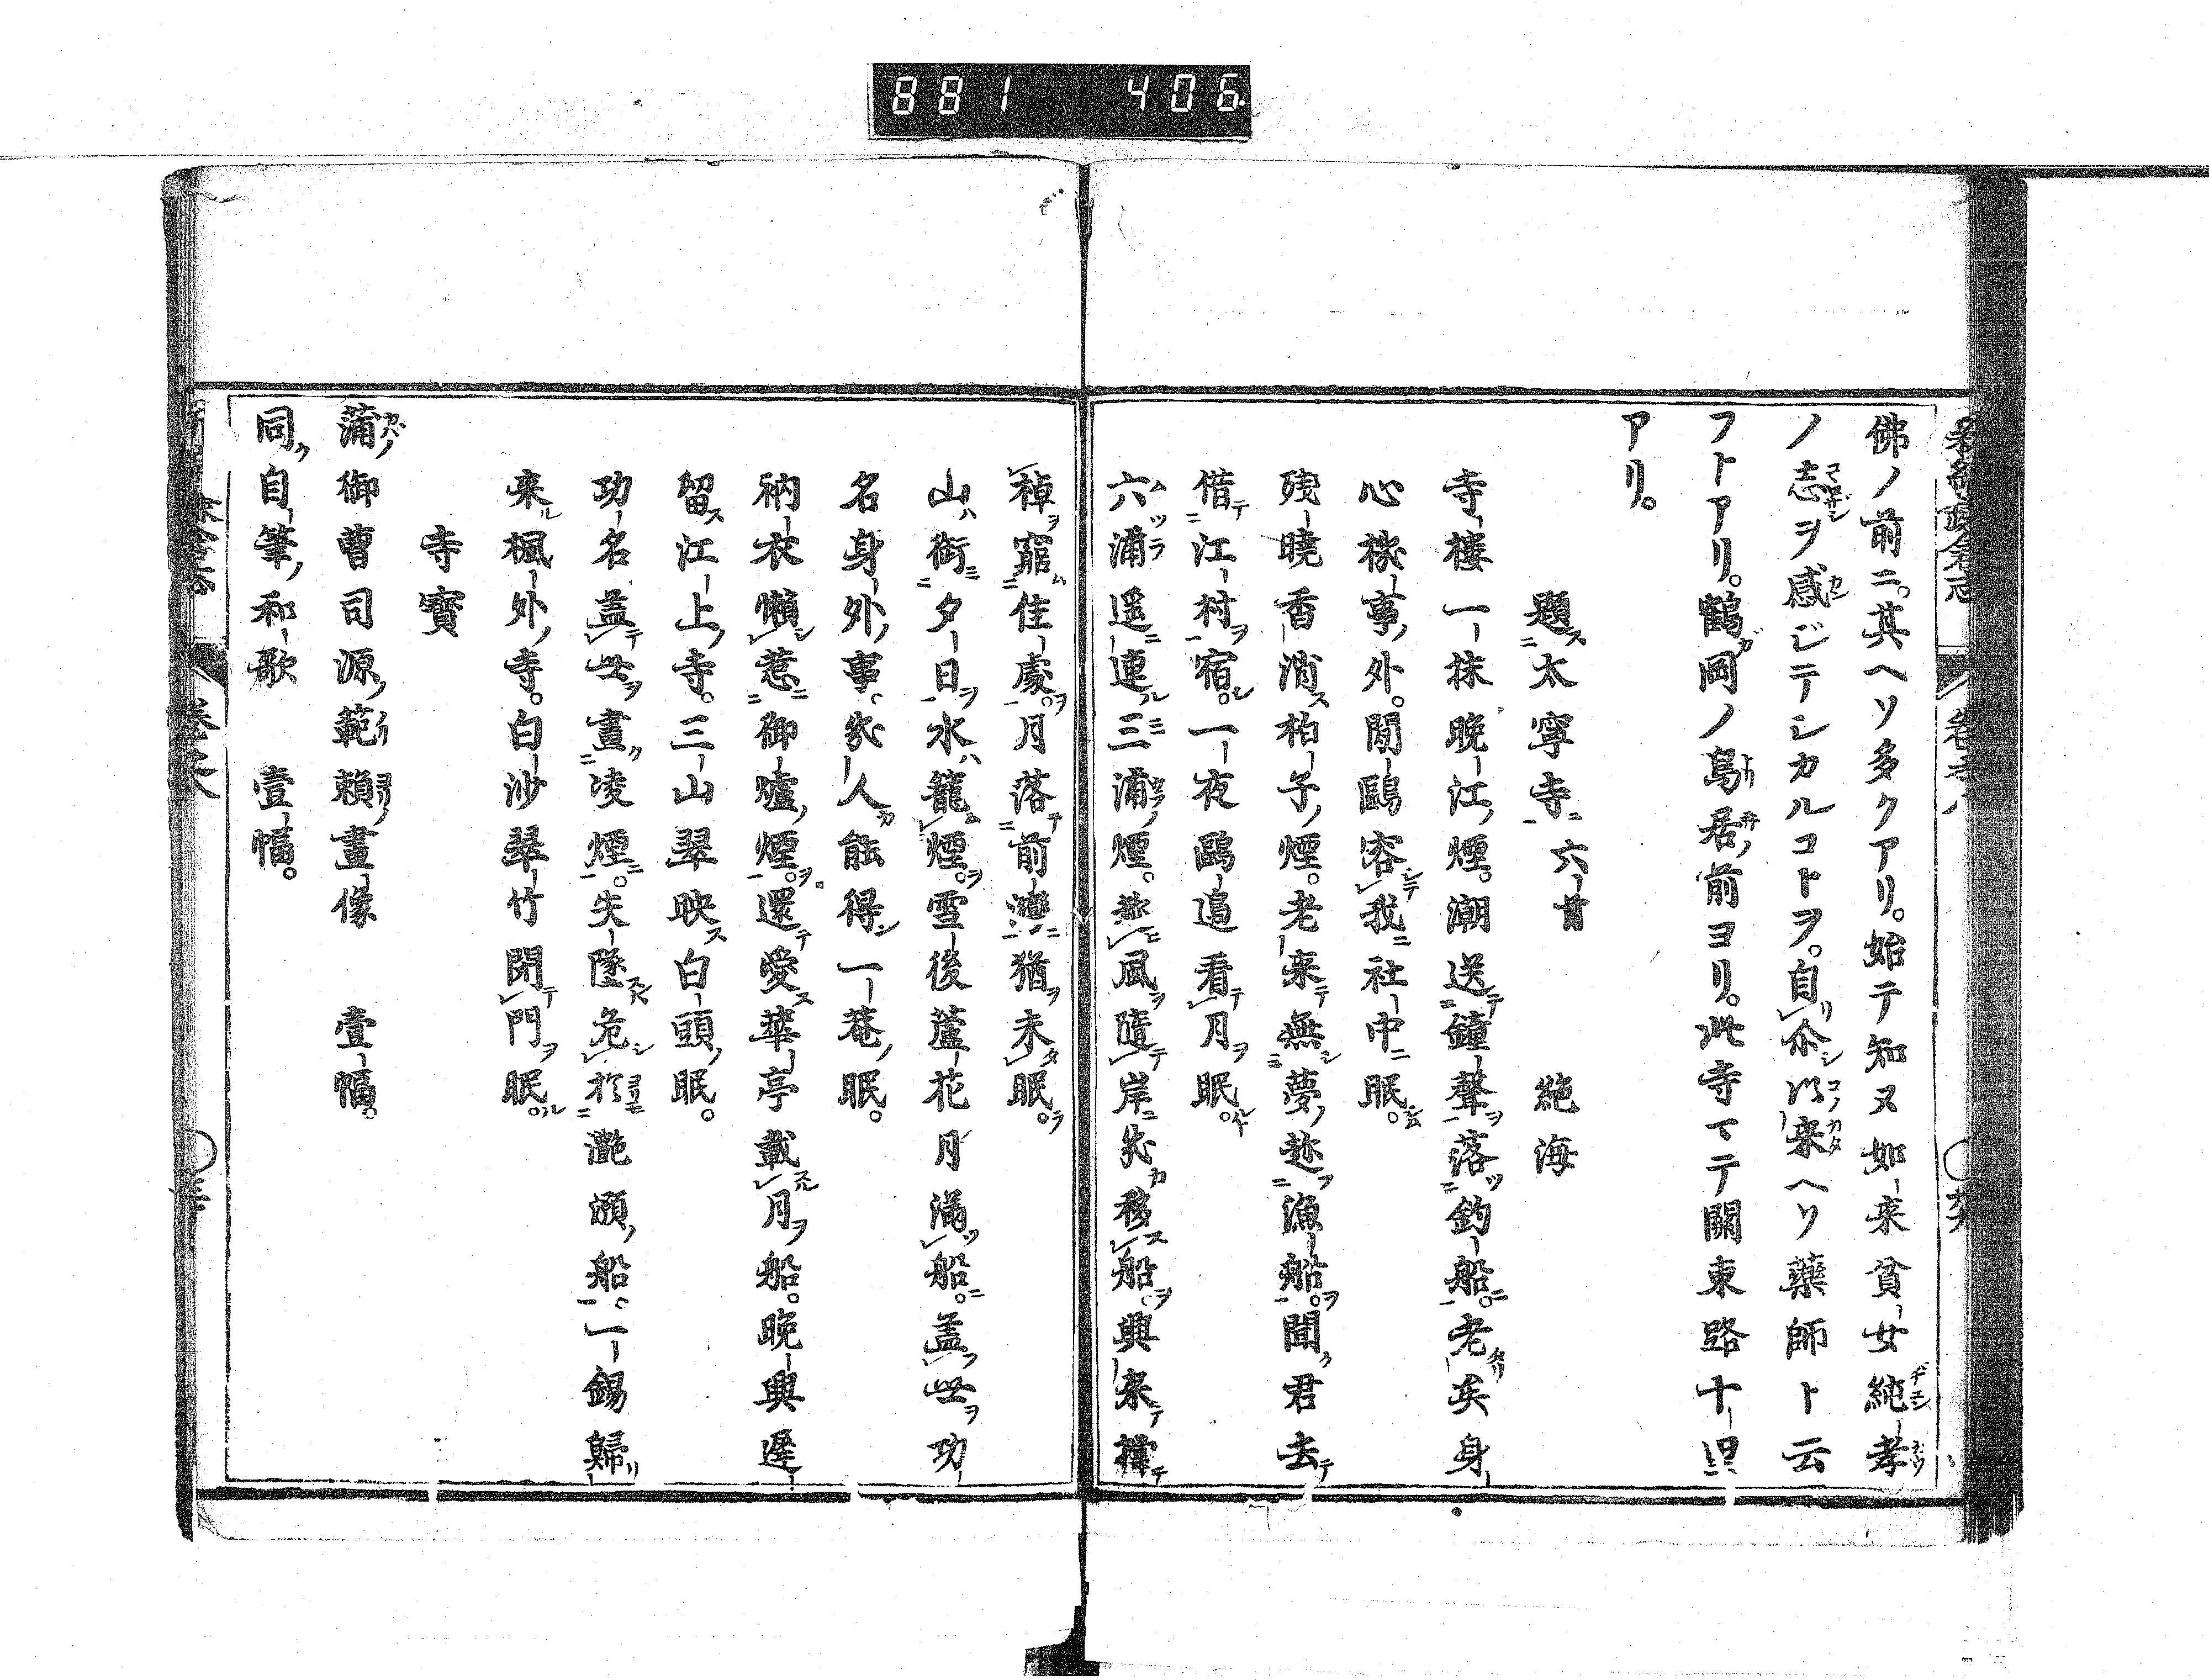 881 406
佛ノ前ニ。其ヘソ多クアリ。始テ知ヌ如来貧女純孝
ノ志ヲ感ジテシカルコトヲ。自尒以来ヘソ藥師ト云
フトアリ。鶴岡ノ鳥居前ヨリ。此寺マテ關東路十里
アリ。
題太寧寺六首 絶海
寺樓一抹晩江煙。潮送鐘聲落釣船。老矣身
心機事外。閒鷗容我社中眠。
残曉香消柏子煙。老来無夢趁漁船。聞君去
借江村宿。一夜鷗邉看月眠。
六浦遥連三浦煙。趂風隨岸幾移船。興来撐
棹窮佳處。月落前灣猶未眠。
山銜夕日水籠煙。雪後蘆花月滿船。盖世功
名身外事。幾人能得一菴眠。
衲衣懶惹御爐煙。還愛華亭載月船。晩興遅
留江上寺。三山翠映白頭眠。
功名盖世畫凌煙。失墜危於灔澦船。一錫歸
来楓外寺。白沙翠竹閉門眠。
寺寶
蒲御曹司源範頼畫像 壹幅。
同自筆和歌 壹幅。